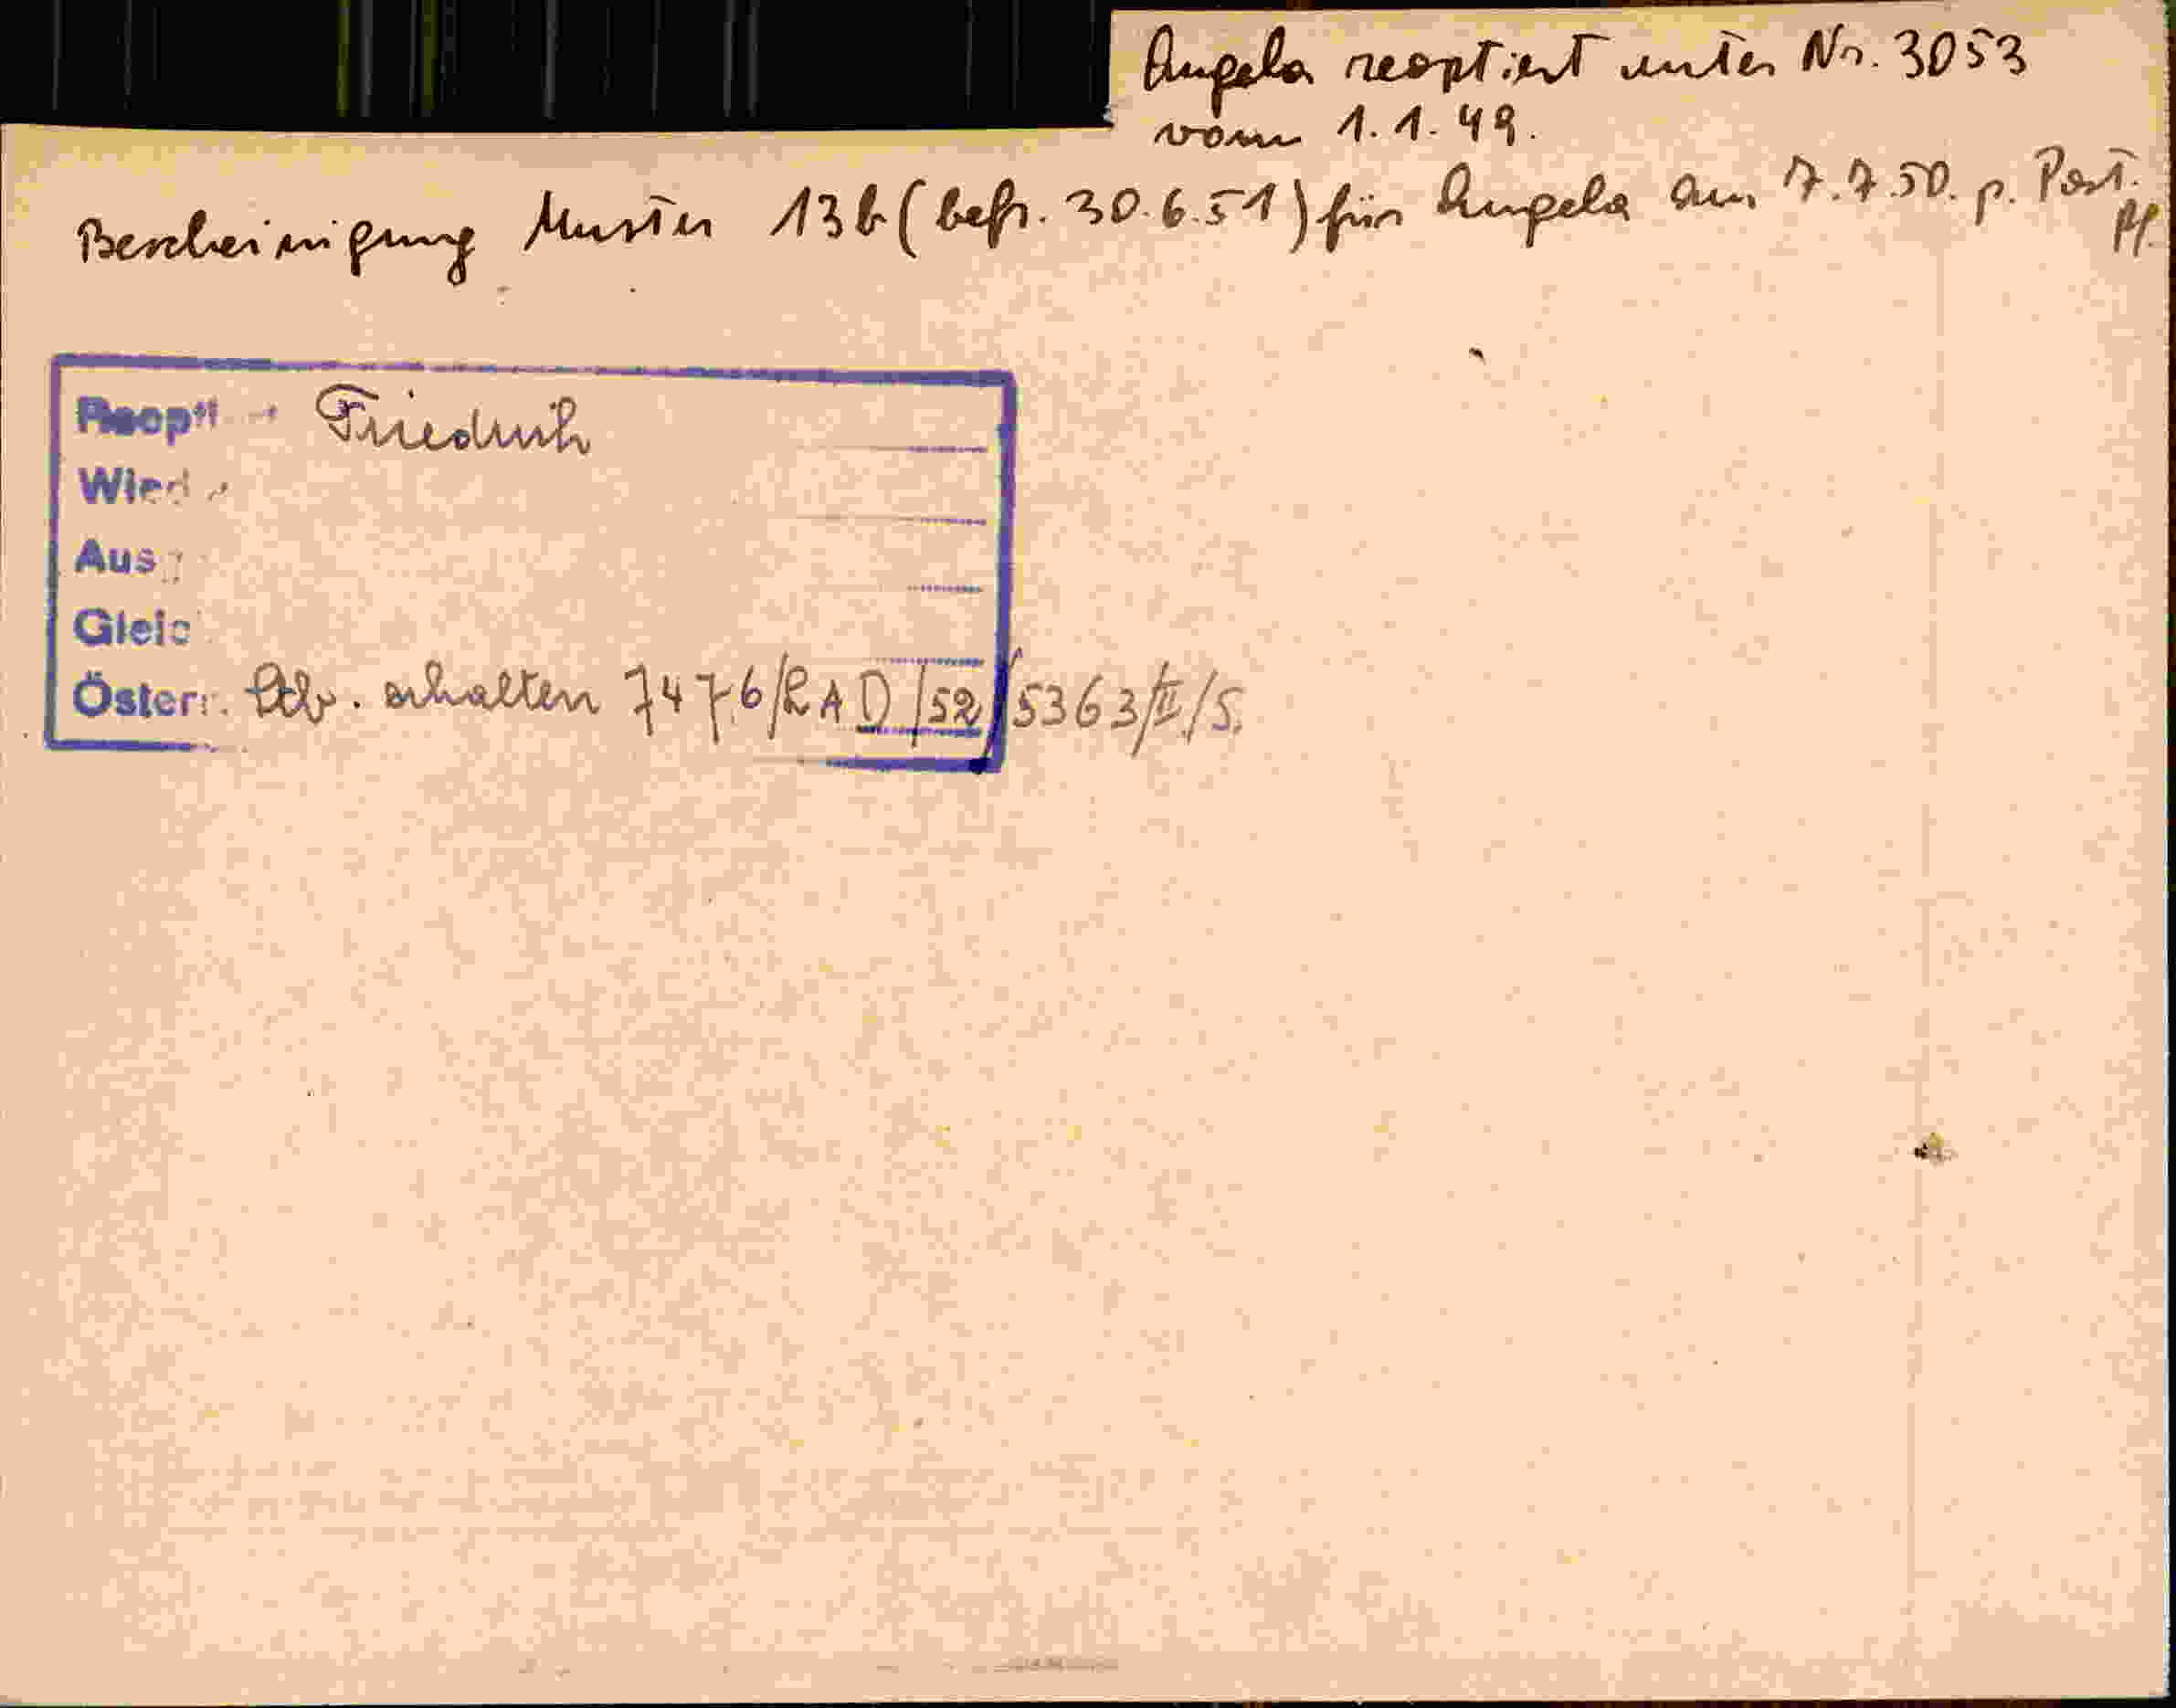 Angela reoptiert unter Nr. 3053
vom 1.1.49.
Bescheinigung Muster 13b (befr. 30.6.51) für Angela am 7.7.50. p. Post.
Reopti Friedrich
Wied
Aus
Gleic
Österr. Stb. erhalten 7476/RAD/52/5363/II/5.